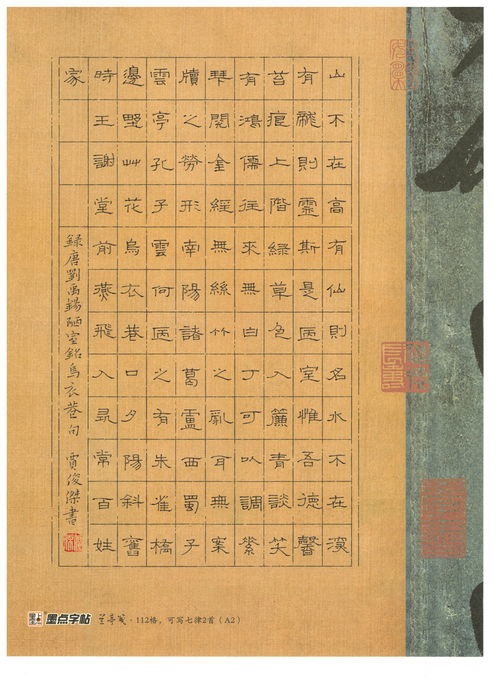 山不在高有仙則名水不在深
有龍則靈斯是陋室惟吾德馨
苔痕上階綠草色入簾青談笑
有鴻儒往來無白丁可以調素
琴閱金經無絲竹之亂耳無案
牘之勞形南陽諸葛廬西蜀子
雲亭孔子雲何陋之有朱雀橋
邊野艸花烏衣巷口夕陽斜舊
時王謝堂前燕飛入尋常百姓
家
録唐劉禹錫陋室銘烏衣巷句 賈俊傑書
墨点字帖
·112格，可写七律2首（A2）